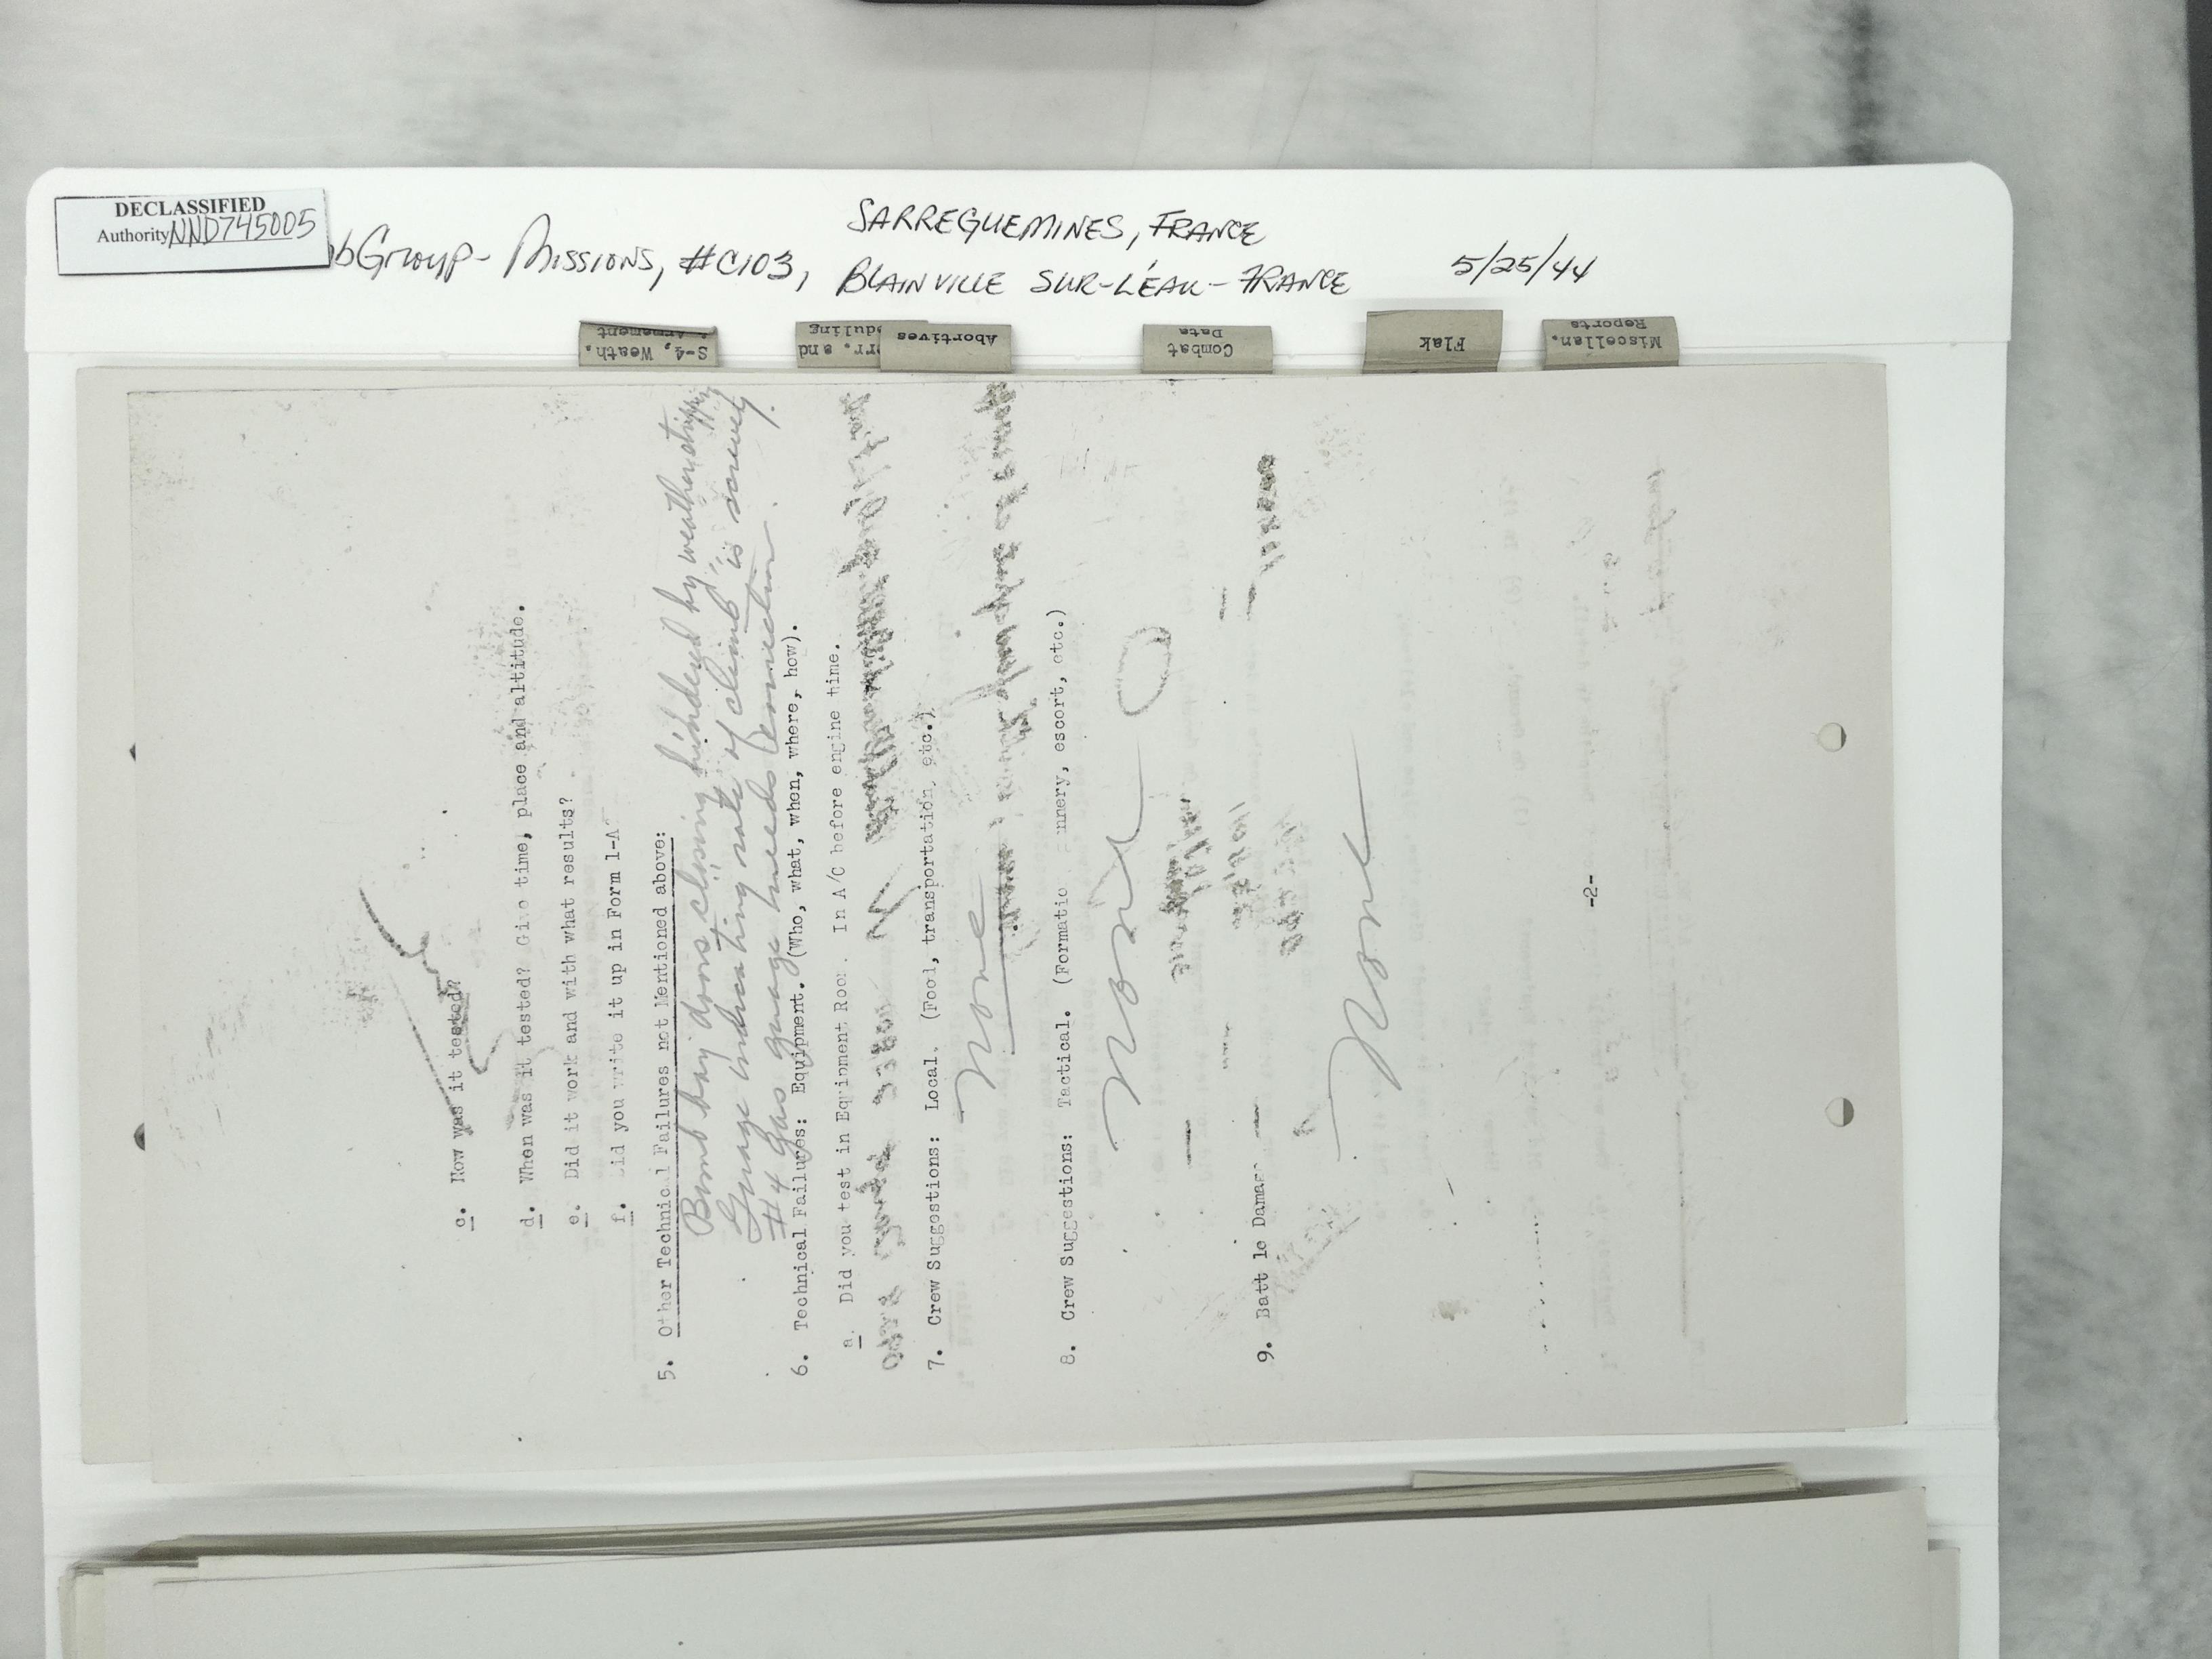 DECLASSIFIED
Authority NND745005
bGroup - Missions, #C103,
SARREGUEMINES, FRANCE
BLAINVILLE SUR-L'EAU - FRANCE
5/25/44
S-4, Weath.
Armement
rr. and
duling
Abortives
Combat
Data
Flak
Miscellan.
Reports
c. How was it tested?
d. When was it tested? Give time, place and altitude.
e. Did it work and with what results?
f. Did you write it up in Form 1-A
5. Other Technical Failures not Mentioned above:
Bomb bay doors closing hindered by weatherstripping
Guage indicating rate of climb is screwey.
#4 gas guage needs correction.
6. Technical Failures: Equipment. (Who, what, when, where, how).
a. Did you test in Equipment Room. In A/C before engine time.
7. Crew Suggestions: Local. (Food, transportation, etc.)
None
8. Crew Suggestions: Tactical. (Formatio nnery, escort, etc.)
None
9. Batt le Damag
None
-2-